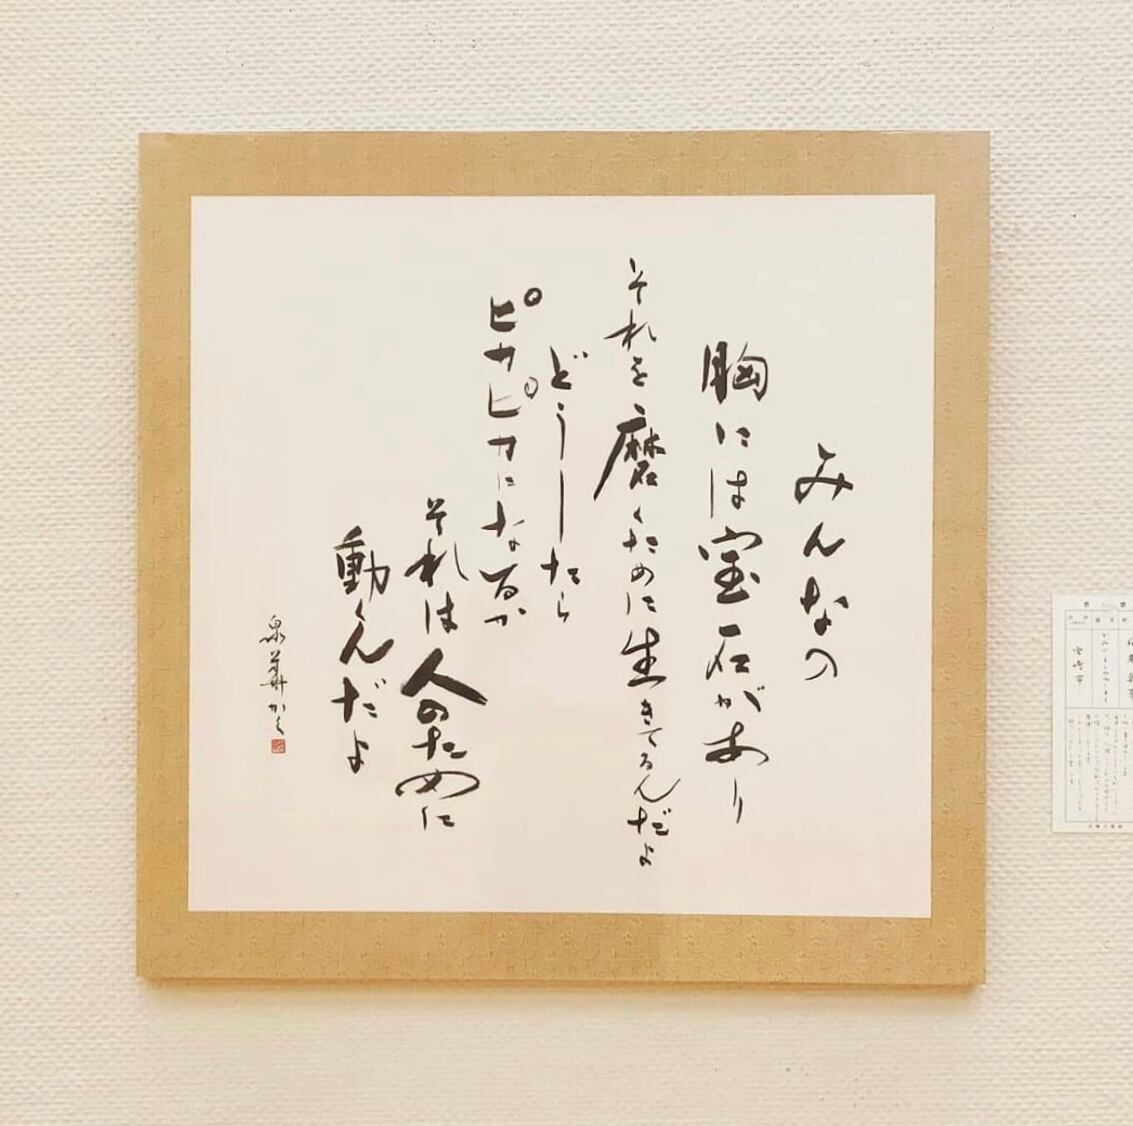 みんなの
胸には宝石があり
それを磨くために生きてるんだよ
どうしたら
ピカピカになるか
それは人のために
動くんだよ
泉華かく
宮崎市